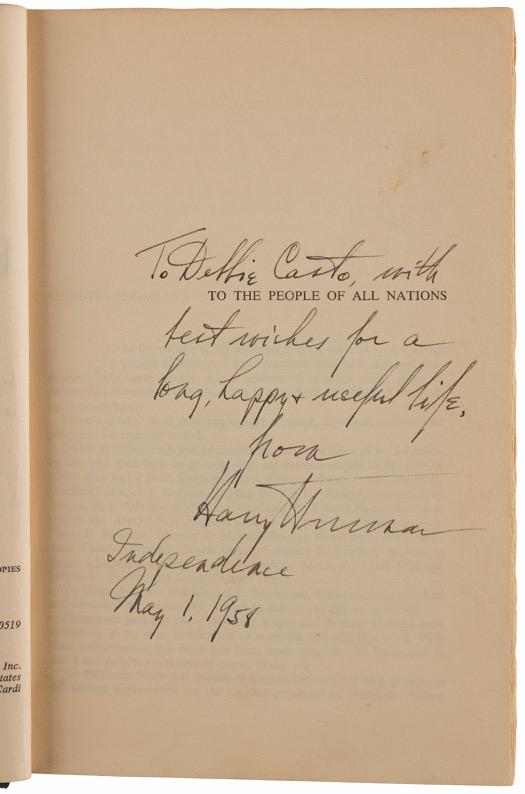 To Debbie Casto, with
TO THE PEOPLE OF ALL NATIONS
best wishes for a
long, happy + useful life,
from
Harry Truman
Independence
May 1, 1958
OPIES
0519
Inc.
tates
Cardi